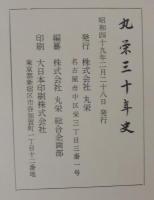 丸栄三十年史
昭和四十九年二月二十八日発行
発行 株式会社 丸栄
名古屋市中区栄三丁目三番一号
編纂 株式会社 丸栄 総合企画部
印刷 大日本印刷株式会社
東京都新宿区市谷加賀町一丁目十二番地